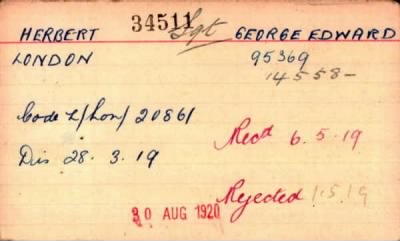 HERBERT 34511 Sgt GEORGE EDWARD
LONDON 95369
14558-
Code L/Lon/ 20861
Recd 6.5.19
Dis 28.3.19
Rejected 1.5.19
30 AUG 1920